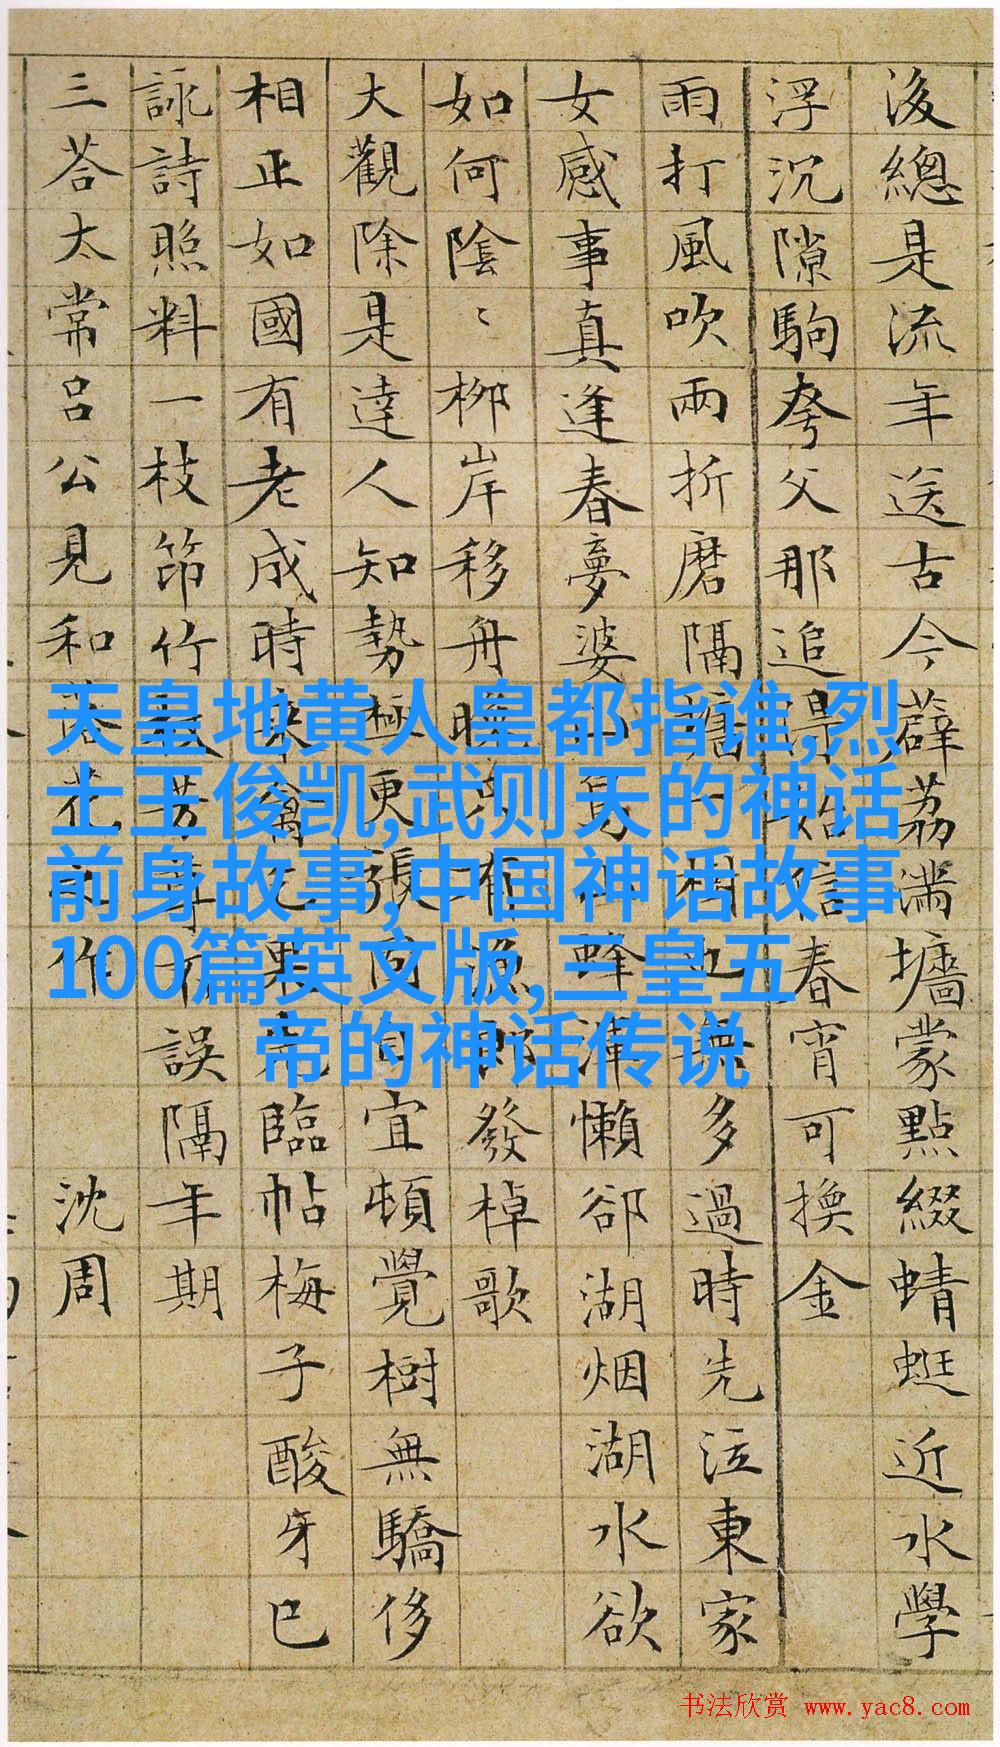 後總是流年送古今薜荔滿墻蒙點綴蜻蜓近水學
浮沉隙駒夸父那追始春宵可換金
雨打風吹兩折磨隔墻一樹也無多過時先泣東家
女感事真逢春夢婆蜂渾懶郤湖烟湖水欲
如何陰〻柳岸移舟晚漁郎發棹歌
大觀除是達人知勢極更張向宜頓覺樹無驕侈
相正如國有老成時禽臨帖梅子酸牙已
詠詩照料一枝笻竹芳誤隔年期
三荅太常呂公見和落花之作 沈周
天皇地黄人皇都指谁,烈
士王俊凯,武则天的神话
前身故事,中国神话故事
100篇英文版,三皇五
帝的神话传说
书法欣赏 www.yac8.com